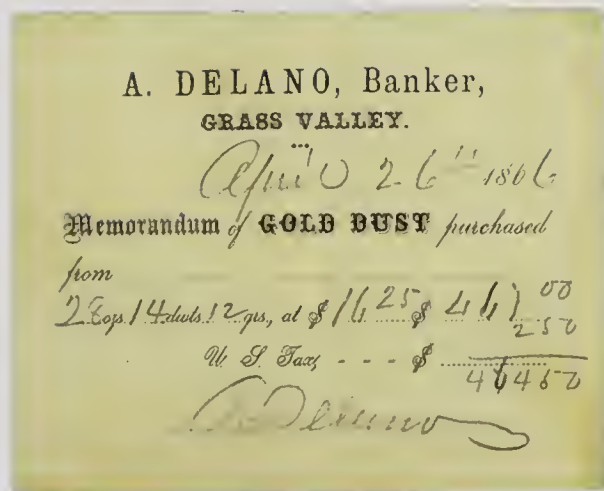 A. DELANO, Banker,
GRASS VALLEY.
April 26th 1866
Memorandum of GOLD DUST purchased
from
28 ozs 14 dwts 12 grs, at $ 16 25 $ 467 00
2 50
U. S. Tax, - - - $
464 50
A Delano